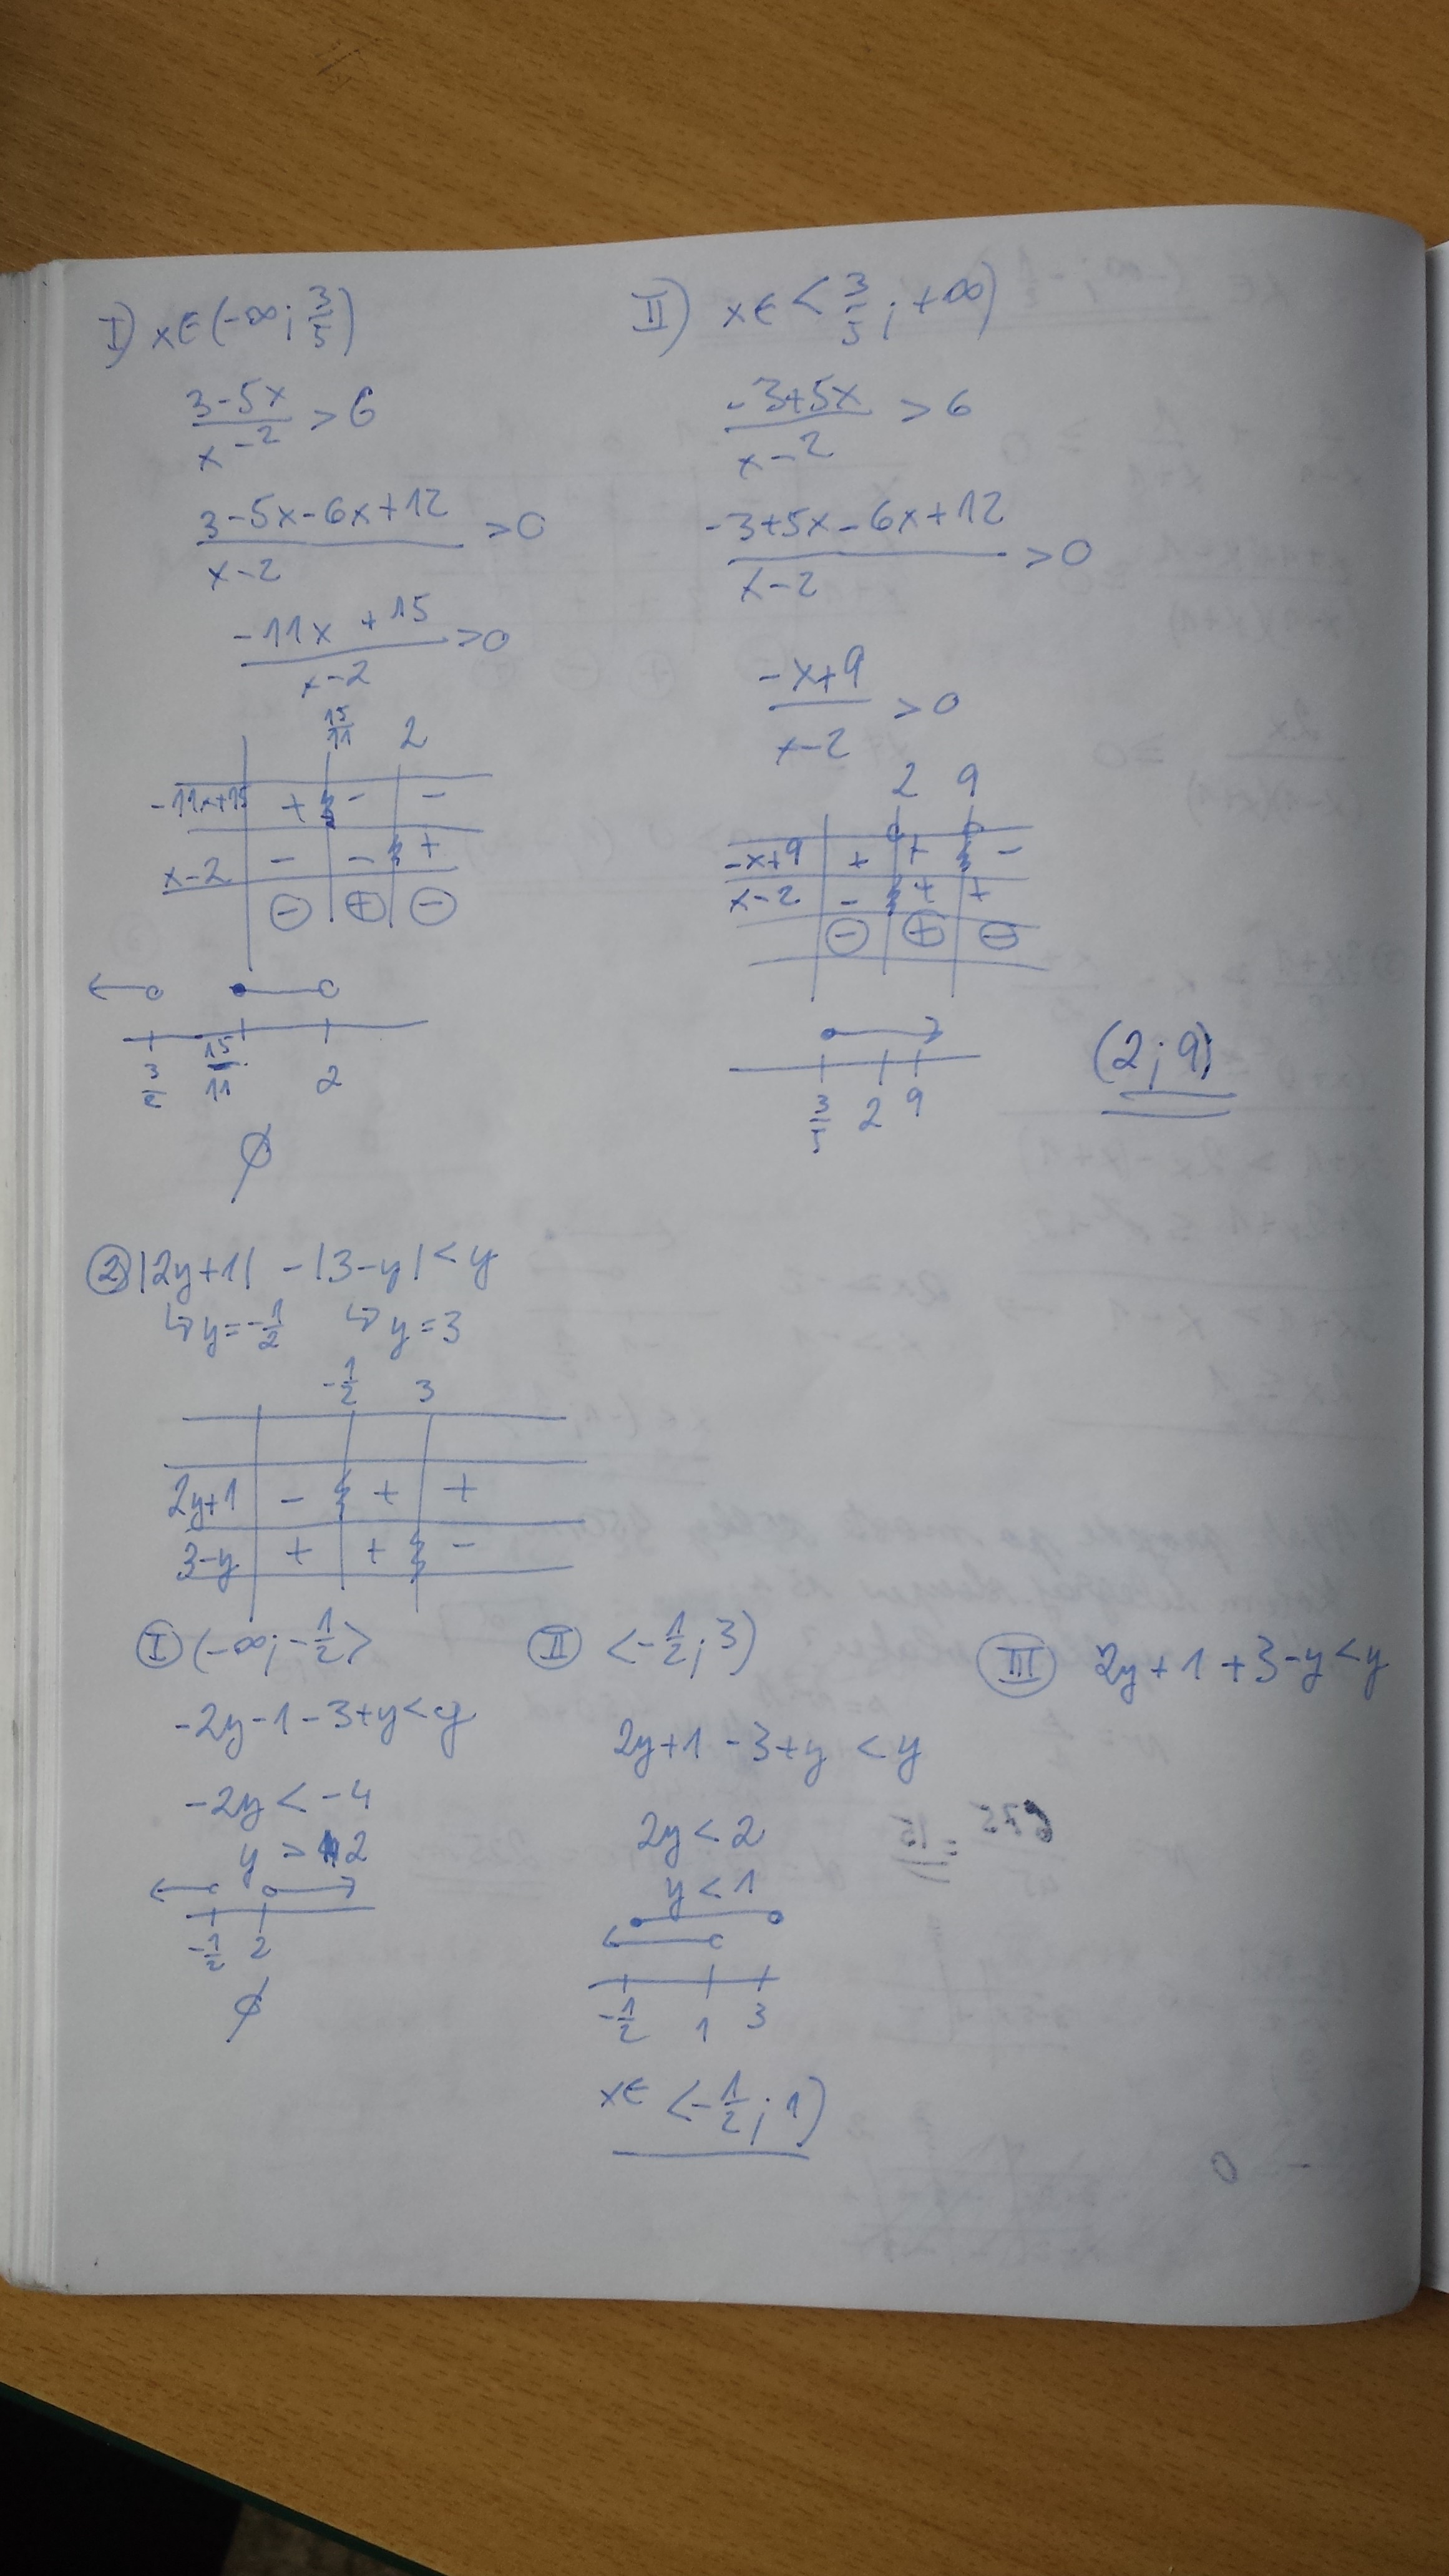 I) x∈(-∞; 3/5)
(3-5x)/(x-2) > 6
(3-5x-6x+12)/(x-2) > 0
(-11x+15)/(x-2) > 0
15/11 2
-11x+15 + - -
x-2 - - +
⊖ ⊕ ⊖
15/11 2
∅
II) x∈<3/5; +∞)
(-3+5x)/(x-2) > 6
(-3+5x-6x+12)/(x-2) > 0
(-x+9)/(x-2) > 0
2 9
-x+9 + + -
x-2 - + +
⊖ ⊕ ⊖
3/5 2 9
(2; 9)
② |2y+1| - |3-y| < y
↳ y=-1/2 ↳ y=3
-1/2 3
2y+1 - + +
3-y + + -
Ⓘ (-∞; -1/2>
-2y-1-3+y<y
-2y < -4
y > 2
-1/2 2
∅
Ⓘ︎Ⓘ <-1/2; 3)
2y+1-3+y < y
2y < 2
y < 1
-1/2 1 3
x∈ <-1/2; 1)
III 2y+1+3-y<y